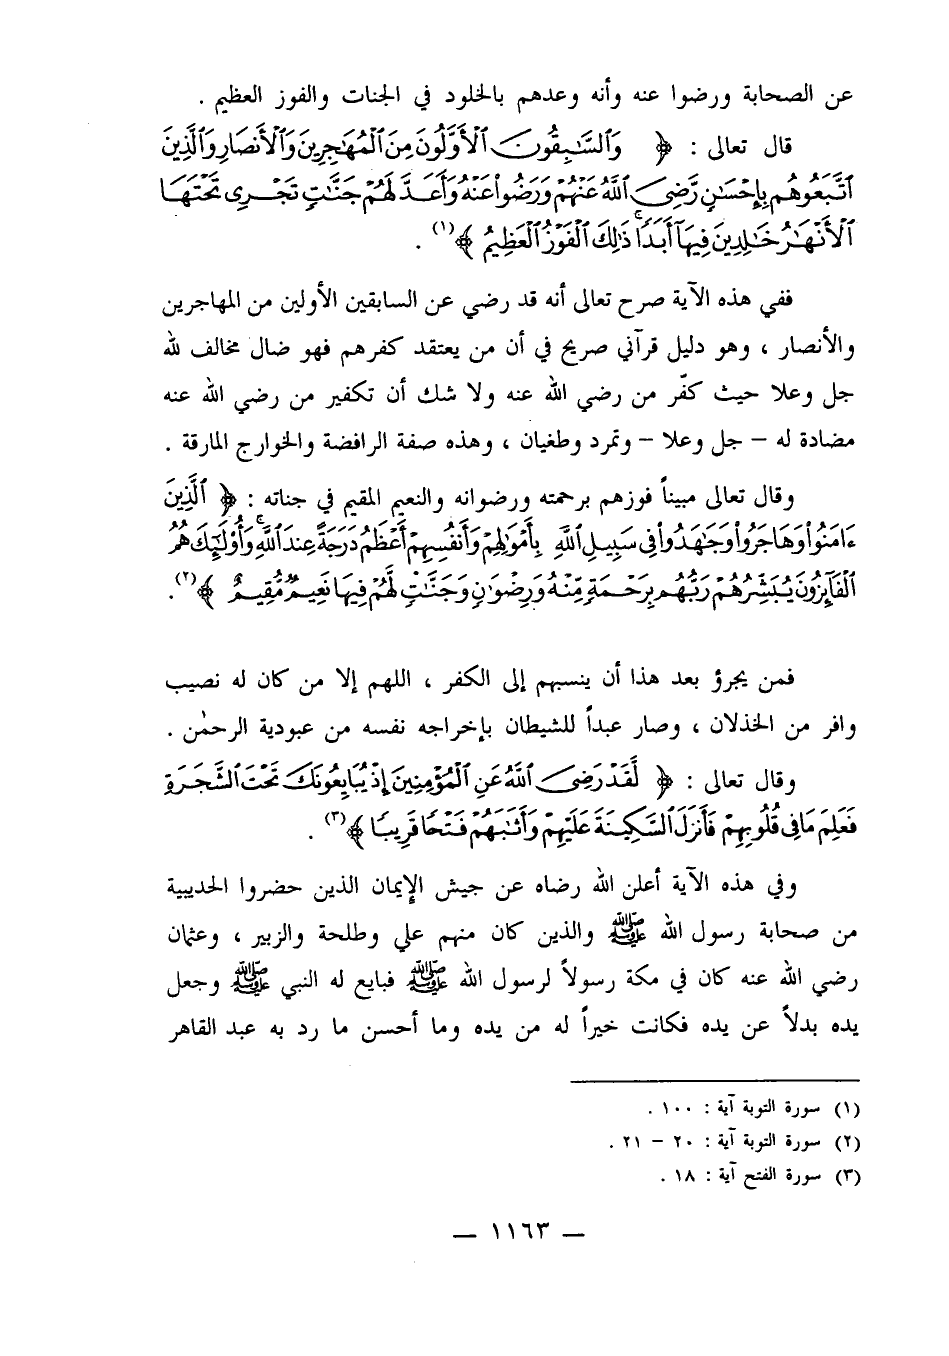 عن الصحابة ورضوا عنه وأنه وعدهم بالخلود في الجنات والفوز العظيم .
قال تعالى : ﴿ وَٱلسَّٰبِقُونَ ٱلۡأَوَّلُونَ مِنَ ٱلۡمُهَٰجِرِينَ وَٱلۡأَنصَارِ وَٱلَّذِينَ
ٱتَّبَعُوهُم بِإِحۡسَٰنٖ رَّضِيَ ٱللَّهُ عَنۡهُمۡ وَرَضُواْ عَنۡهُ وَأَعَدَّ لَهُمۡ جَنَّٰتٖ تَجۡرِي تَحۡتَهَا
ٱلۡأَنۡهَٰرُ خَٰلِدِينَ فِيهَآ أَبَدٗاۚ ذَٰلِكَ ٱلۡفَوۡزُ ٱلۡعَظِيمُ ﴾(١) .
ففي هذه الآية صرح تعالى أنه قد رضي عن السابقين الأولين من المهاجرين
والأنصار ، وهو دليل قرآني صريح في أن من يعتقد كفرهم فهو ضال مخالف لله
جل وعلا حيث كفّر من رضي الله عنه ولا شك أن تكفير من رضي الله عنه
مضادة له – جل وعلا – وتمرد وطغيان ، وهذه صفة الرافضة والخوارج المارقة .
وقال تعالى مبيناً فوزهم برحمته ورضوانه والنعيم المقيم في جناته : ﴿ ٱلَّذِينَ
ءَامَنُواْ وَهَاجَرُواْ وَجَٰهَدُواْ فِي سَبِيلِ ٱللَّهِ بِأَمۡوَٰلِهِمۡ وَأَنفُسِهِمۡ أَعۡظَمُ دَرَجَةً عِندَ ٱللَّهِۚ وَأُوْلَٰٓئِكَ هُمُ
ٱلۡفَآئِزُونَ يُبَشِّرُهُمۡ رَبُّهُم بِرَحۡمَةٖ مِّنۡهُ وَرِضۡوَٰنٖ وَجَنَّٰتٖ لَّهُمۡ فِيهَا نَعِيمٞ مُّقِيمٌ ﴾(٢).
فمن يجرؤ بعد هذا أن ينسبهم إلى الكفر ، اللهم إلا من كان له نصيب
وافر من الخذلان ، وصار عبداً للشيطان بإخراجه نفسه من عبودية الرحمٰن .
وقال تعالى : ﴿ لَّقَدۡ رَضِيَ ٱللَّهُ عَنِ ٱلۡمُؤۡمِنِينَ إِذۡ يُبَايِعُونَكَ تَحۡتَ ٱلشَّجَرَةِ
فَعَلِمَ مَا فِي قُلُوبِهِمۡ فَأَنزَلَ ٱلسَّكِينَةَ عَلَيۡهِمۡ وَأَثَٰبَهُمۡ فَتۡحٗا قَرِيبٗا ﴾(٣) .
وفي هذه الآية أعلن الله رضاه عن جيش الإيمان الذين حضروا الحديبية
من صحابة رسول الله ﷺ والذين كان منهم علي وطلحة والزبير ، وعثمان
رضي الله عنه كان في مكة رسولاً لرسول الله ﷺ فبايع له النبي ﷺ وجعل
يده بدلاً عن يده فكانت خيراً له من يده وما أحسن ما رد به عبد القاهر
(١) سورة التوبة آية : ١٠٠ .
(٢) سورة التوبة آية : ٢٠ – ٢١ .
(٣) سورة الفتح آية : ١٨ .
— ١١٦٣ —